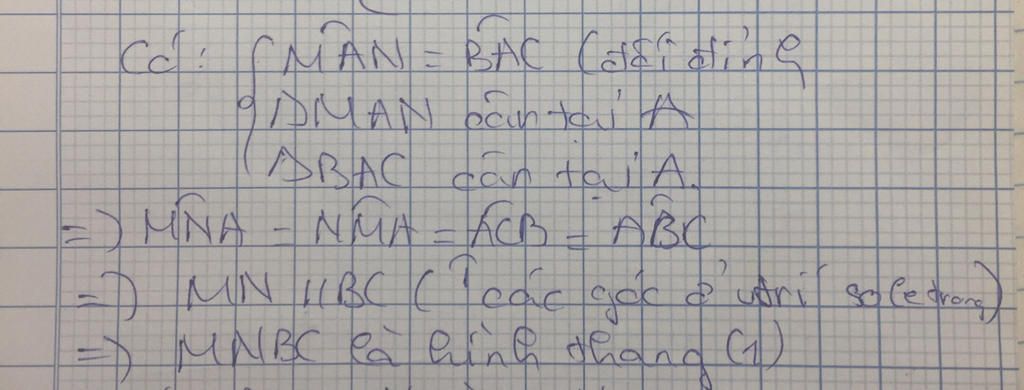 Có: { MAN̂ = BAĈ (đối đỉnh
ΔMAN cân tại A
ΔBAC cân tại A.
=> MNÂ = NMÂ = ACB̂ = ABĈ
=> MN // BC ( các góc ở vị trí so le trong)
=> MNBC là hình thang (1)